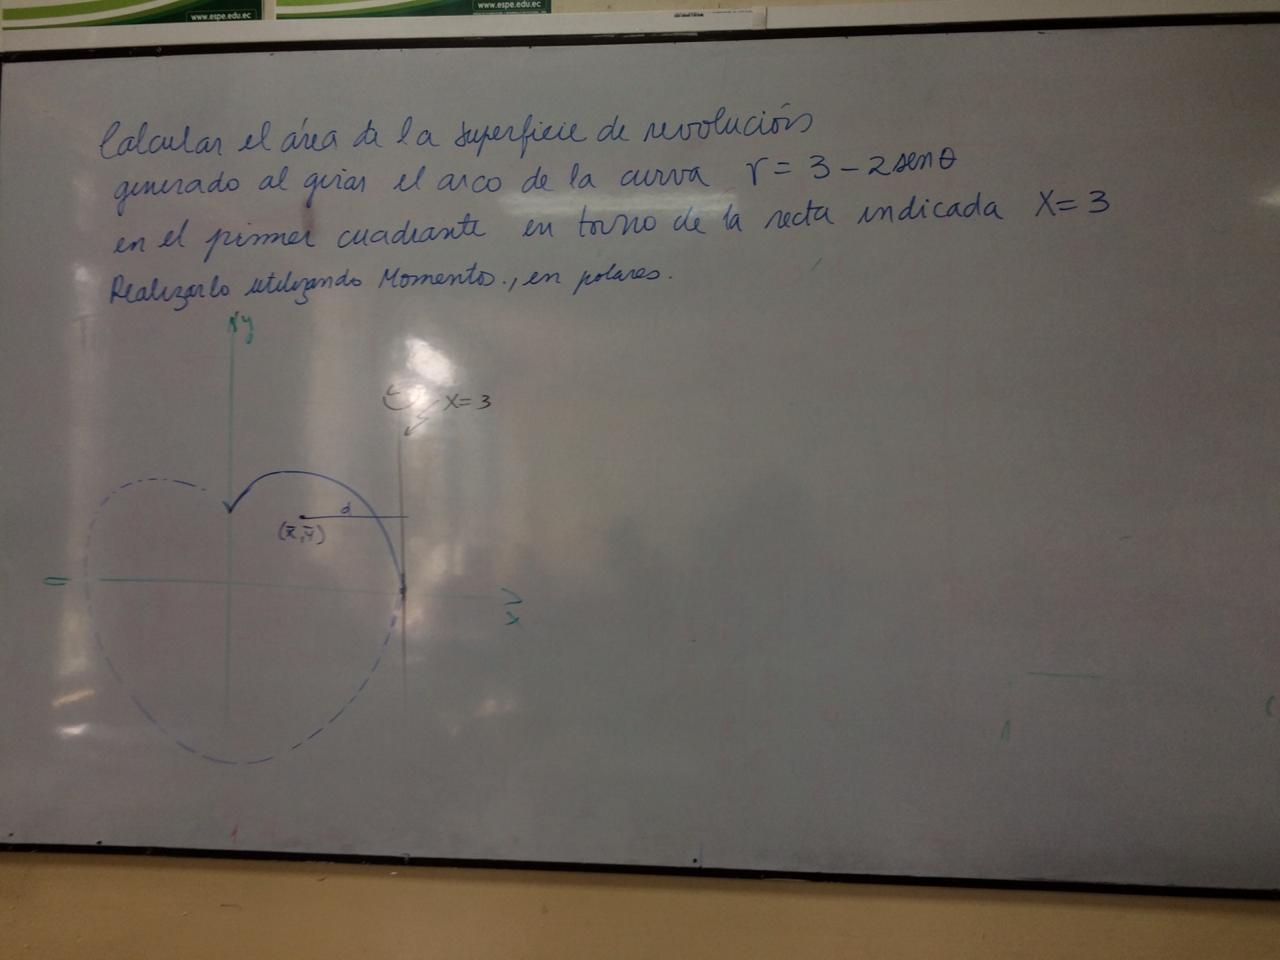 www.espe.edu.ec
www.espe.edu.ec
Calcular el área de la superficie de revolución
generado al girar el arco de la curva r = 3 - 2 sen θ
en el primer cuadrante en torno de la recta indicada X = 3
Realizarlo utilizando Momentos., en polares.
y
X = 3
d
(x̄, ȳ)
x